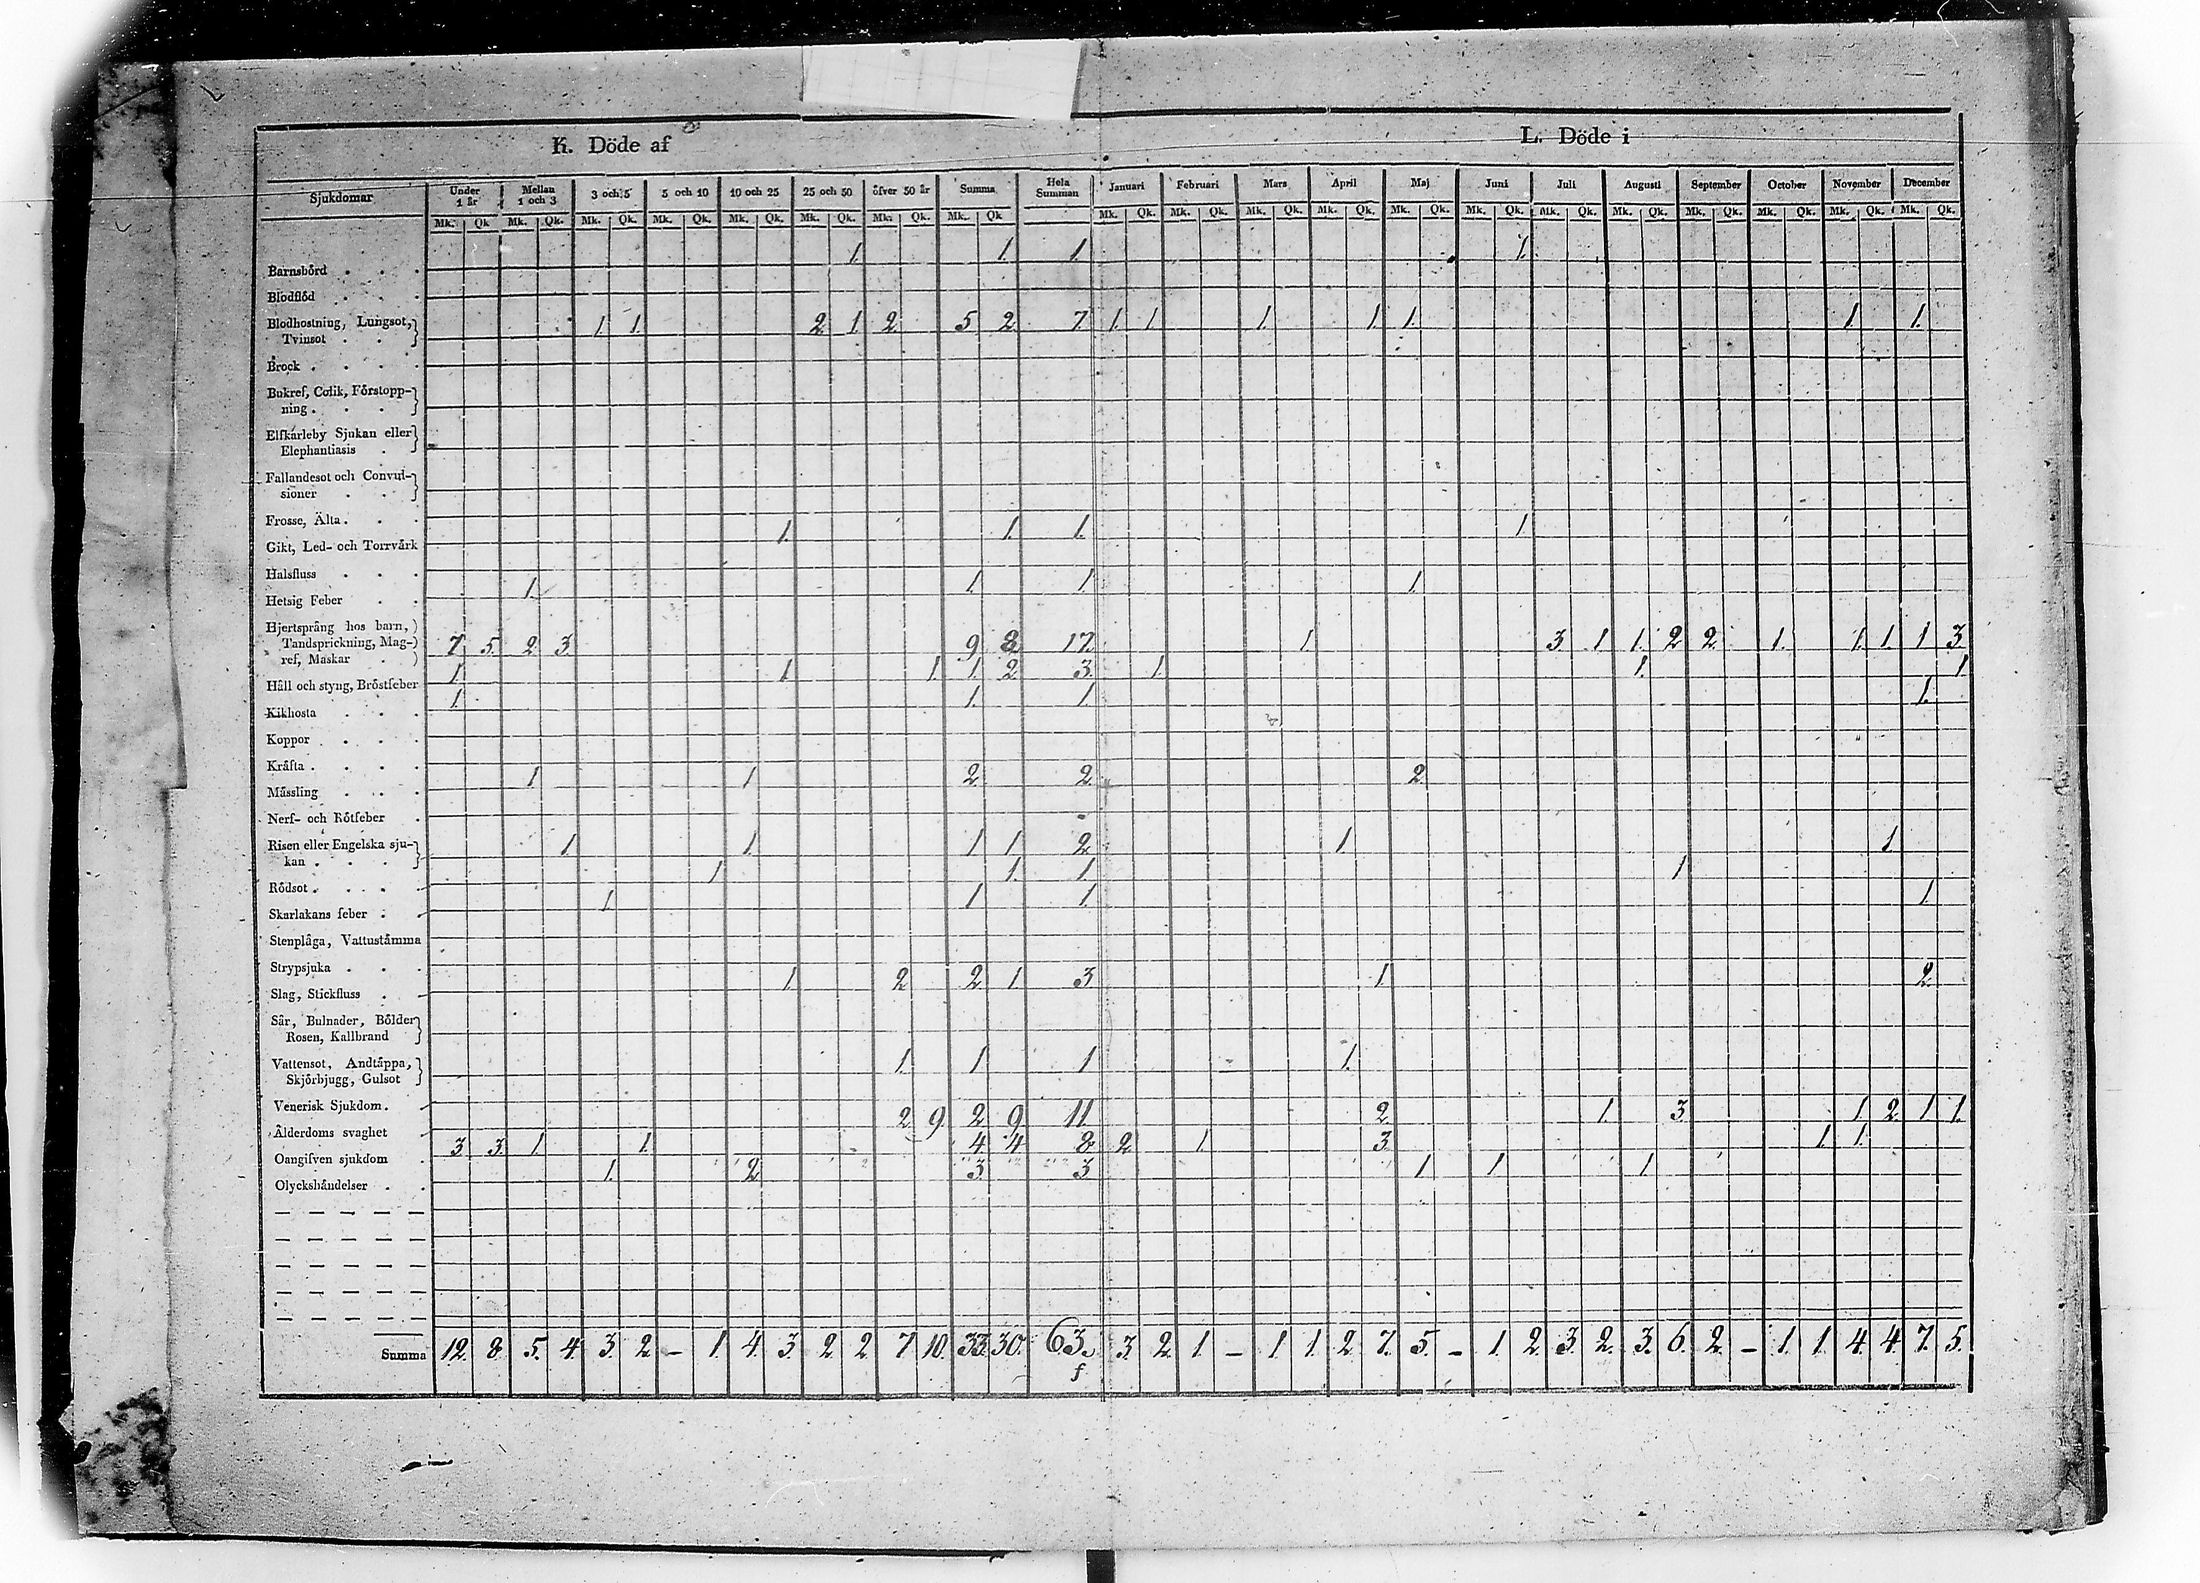 K. Döde af L. Döde i
Sjukdomar Under 1 år Mellan 1 och 3 3 och 5 5 och 10 10 och 25 25 och 50 öfver 50 år Summa Hela Summan Januari Februari Mars April Maj Juni Juli Augusti September October November December
Mk. Qk Mk. Qk. Mk. Qk. Mk. Qk. Mk. Qk. Mk. Qk. Mk. Qk. Mk. Qk Mk. Qk. Mk. Qk. Mk. Qk. Mk. Qk. Mk. Qk. Mk. Qk. Mk. Qk. Mk. Qk. Mk. Qk. Mk. Qk. Mk. Qk. Mk. Qk.
Barnsbörd . . . 1. 1. 1. 1.
Blodflöd . . .
Blodhostning, Lungsot,
Tvinsot . . . 1. 1. 2 1 2 5 2 7 1. 1 1. 1 1. 1. 1.
Bråck . . . .
Bukref, Colik, Förstopp-
ning . . .
Elfkarleby Sjukan eller
Elephantiasis .
Fallandesot och Convul-
sioner . . .
Frosse, Älta . . .
Gikt, Led- och Torrvärk 1. 1. 1. 1.
Halsfluss . . .
Hetsig Feber . . 1. 1. 1. 1.
Hjertsprång hos barn,
Tandsprickning, Mag-
ref, Maskar . . 7. 5. 2 3. 9 8 17. 1 3 1 1. 2 2 1. 1. 1. 1 3.
Håll och styng, Bröstfeber 1. 1. 1. 1. 2 3. 1. 1. 1
Kikhosta . . . 1. 1. 1. 1.
Koppor . . . .
Kräfta . . . .
Mässling . . . 1 1 2 2 2
Nerf- och Rötfeber .
Risen eller Engelska sju-
kan . . . . 1. 1. 1 1 2 1 1
Rödsot . . . . 1 1. 1 1
Skarlakans feber . . 1. 1 1. 1.
Stenplåga, Vattustämma
Strypsjuka . . .
Slag, Stickfluss . . 1 2 2 1 3 1. 2.
Sår, Bulnader, Bölder
Rosen, Kallbrand
Vattensot, Andtäppa,
Skjörbjugg, Gulsot 1. 1 1 1.
Venerisk Sjukdom . .
Ålderdoms svaghet 2 9 2 9 11. 2. 1. 3. 1. 2. 1 1.
Oangifven sjukdom . 3 3. 1 1. 4 4 8 2 1 3. 1. 1.
Olyckshändelser . . 1. 2 3 3 1 1 1
Summa 12. 8 5. 4. 3. 2 – 1. 4 3. 2 2 7 10. 33. 30. 63. 3. 2 1 – 1 1. 2 7. 5. – 1. 2 3. 2. 3. 6. 2. – 1 1 4. 4 7. 5.
f